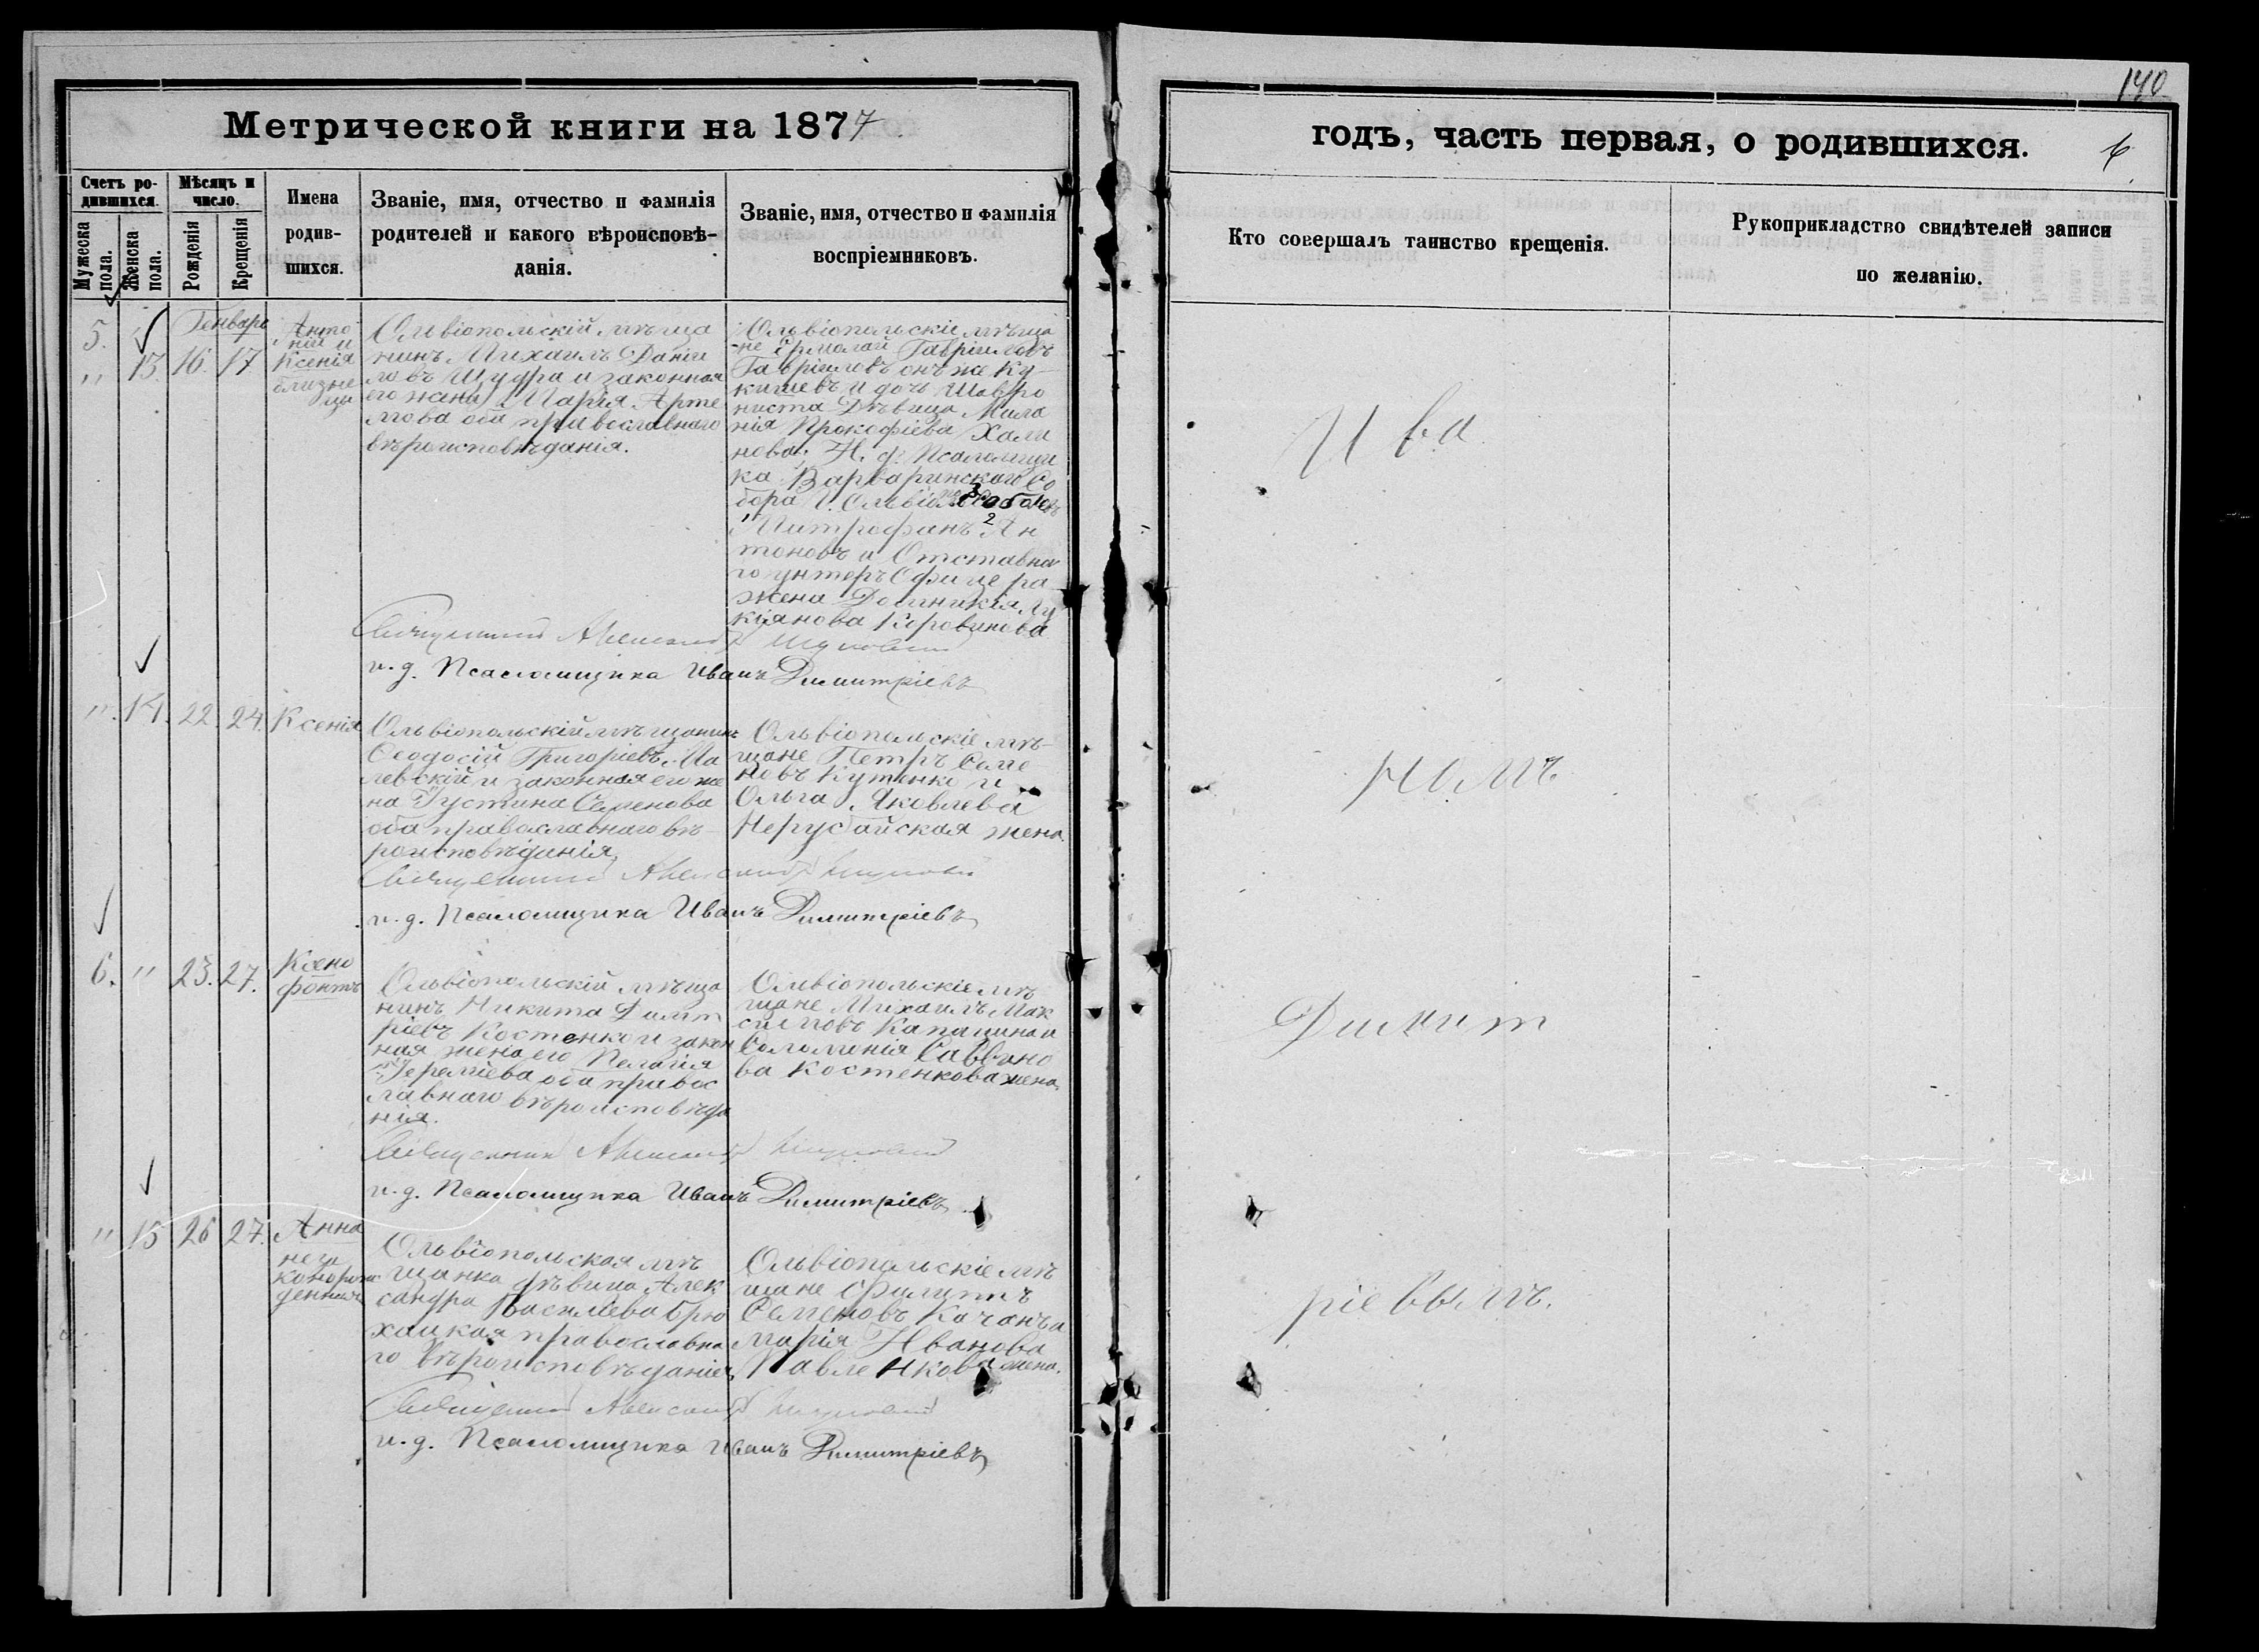 140
Метрической книги на 1877
годъ, часть первая, о родившихся.
6
Счетъ ро-
дившихся.
Мужеска пола.
Женска пола.
Мѣсяцъ и
число.
Рожденія
Крещенія
Имена
родив-
шихся.
Званіе, имя, отчество и фамилія
родителей и какого вѣроисповѣ-
данія.
Званіе, имя, отчество и фамилія
воспріемниковъ.
Кто совершалъ таинство крещенія.
Рукоприкладство свидѣтелей записи
по желанію.
Генваря
5.
" 13. 16. 17
Анто
ній и
Ксенія
близне
цы
Ольвіопольскій мѣща
нинъ Михаилъ Даніи
ловъ Щудра и законная
его жена Марія Арте
мова оба православнаго
вѣроисповѣданія.
Ольвіопольскіе мѣща
не Ермолай Гавріиловъ
Гавріиловъ онъ же Ку-
кишевъ и дочь
Дѣвица Мила
нія Прокофіева Хали
нова; И. д. Псаломщи
ка Варваринскаго Со
бора Г. Ольвіо
Митрофанъ Ан
тоновъ и Отставна
го унтеръ Офицера
жена Домникія Лу
кіянова
Священникъ Александръ
и. д. Псаломщика Иванъ Димитріевъ
". 14. 22. 24. Ксенія
Ольвіопольскій мѣщанинъ
Ѳеодосій Григоріевъ Ма
левскій и законная его же
на Іустина Семенова
оба православнаго вѣ-
роисповѣданія,
Ольвіопольскіе мѣ-
щане Петръ Семе
новъ Кутенко и
Ольга Яковлева
Нерубайская жена.
Священникъ Александръ
и. д. Псаломщика Иванъ Димитріевъ
6. " 23. 27.
Ксено
фонтъ
Ольвіопольскій мѣща
нинъ Никита Димит
ріевъ Костенко и закон
ная жена его Пелагія
Іереміева оба правос
лавнаго вѣроисповѣда
нія.
Ольвіопольскіе мѣ
щане Михаилъ Мак
симовъ Капацина и
Соломонія Саввино
ва Костенкова жена,
Священникъ Александръ
и. д. Псаломщика Иванъ Димитріевъ
" 15 26 27.
Анна
неза
конорож
денная
Ольвіопольская мѣ
щанка дѣвица Алек
сандра Василіева Брю
хацкая православна
го вѣроисповѣданія,
Ольвіопольскіе мѣ
щане Филиппъ
Семеновъ Качанъ и
Марія Иванова
Павленкова жена.
Священникъ Александръ
и. д. Псаломщика Иванъ Димитріевъ
Ива
номъ
Димит
ріевымъ.